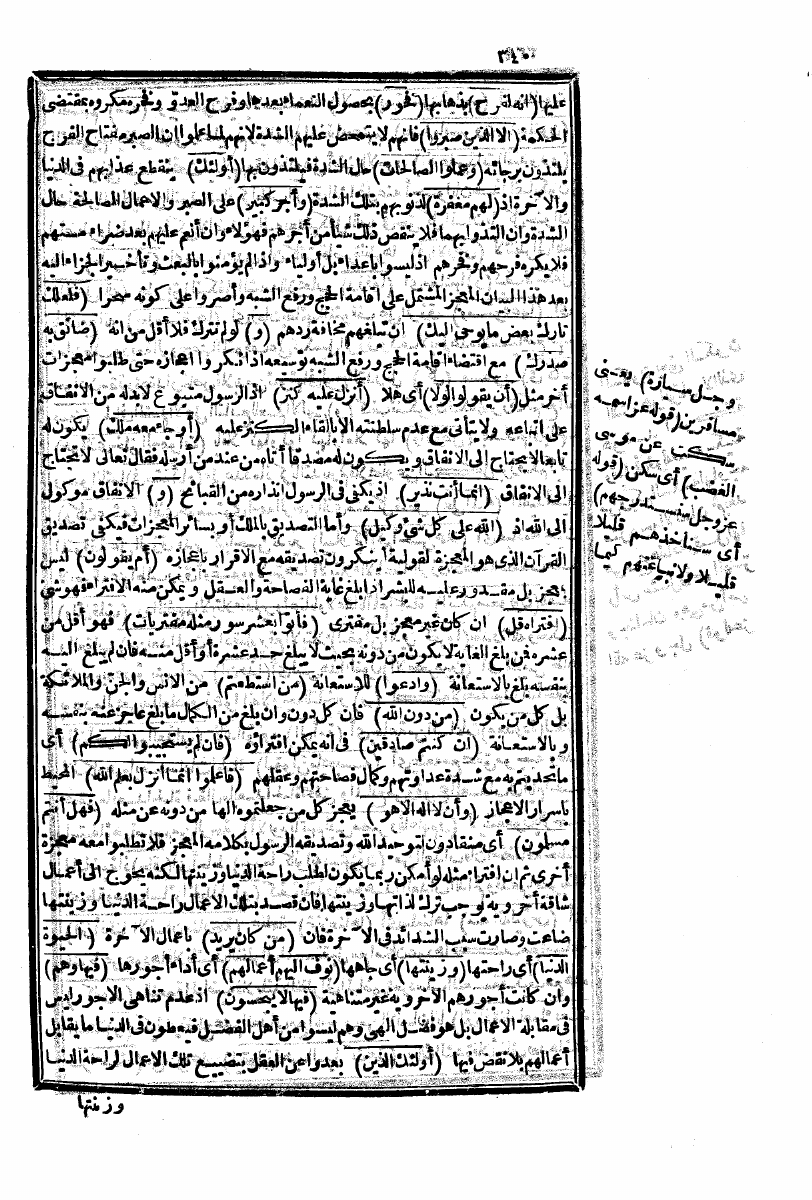 ٣٤٠
عليها (انه لفرح) بذهابها (فخور) بحصول النعماء بعدها وفرح العدو وفخره مكروه بمقتضى
الحكمة (الا الذين صبروا) فانهم لا يتمحض عليهم الشدة لانهم لما علموا ان الصبر مفتاح الفرج
يلتذون برجائه (وعملوا الصالحات) حال الشدة فيلتذون بها (أولئك) ينقطع عذابهم فى الدنيا
والآخرة اذ (لهم مغفرة) لذنوبهم بتلك الشدة (وأجر كبير) على الصبر والاعمال الصالحة حال
الشدة وان التذوا بهما فلا ينقص ذلك شيأ من أجرهم فهؤلاء وان أنعم عليهم بعد ضراء مستهم
فلا يكره فرحهم وفخرهم اذ ليسوا باعداء بل أولياء واذا لم يؤمنوا بالبعث وتأخير الجزاء اليه
بعد هذا البيان المعجز المشتمل على اقامة الحجج ورفع الشبه وأصروا على كونه سحرا (فلعلك
تارك بعض ما يوحى اليك) ان تبلغهم مخافة ردهم (و) لو لم تترك فلا أقل من انه (ضائق به
صدرك) مع اقتضاء اقامة الحجج ورفع الشبه توسيعه اذ انكروا اعجازه حتى طلبوا معجزات
أخر مثل (أن يقولوا لولا) أى هلا (أنزل عليه كنز) اذ الرسول متبوع لا بد له من الانفاق
على اتباعه ولا يتأتى مع عدم سلطنته الا بالقاء الكنز عليه (أو جاء معه ملك) يكون له
تابعا لا يحتاج الى الانفاق ويكون له مصدقا أتاه من عند من أرسله فقال تعالى لا تحتاج
الى الانفاق (انما أنت نذير) اذ يكفى فى الرسول انذاره من القبائح (و) الانفاق موكول
الى الله اذ (الله على كل شئ وكيل) وأما التصديق بالملك أو بسائر المعجزات فيكفى تصديق
القرآن الذى هو المعجزة لقولية أينكرون تصديقه مع الاقرار باعجازه (أم يقولون) ليس
بمعجز بل مقدور عليه للبشر اذا بلغ غاية الفصاحة والعقل ويمكن منه الافتراء فهو شئ
(افتراه قل) ان كان غير معجز بل مفترى (فأتوا بعشر سور مثله مفتريات) فهو أقل من
عشره فمن بلغ الغاية لا يكون من دونه بحيث لا يبلغ حد عشره أو أقل منه فان لم يبلغ اليه
بنفسه بلغ بالاستعانة (وادعوا) للاستعانة (من استطعتم) من الانس والجن والملائكة
بل كل من يكون (من دون الله) فان كل دون وان بلغ من الكمال ما بلغ عاجز عنه بنفسه
وبالاستعانة (ان كنتم صادقين) فى انه يمكن افتراؤه (فان لم يستجيبوا لكم) أى
ما تحديتم به مع شدة عداوتهم وكمال فصاحتهم وعقلهم (فاعلموا انما أنزل بعلم الله) المحيط
باسرار الاعجاز (وأن لا اله الا هو) يعجز كل من جعلتموه الها من دونه عن مثله (فهل أنتم
مسلمون) أى منقادون لتوحيد الله وتصديقه الرسول بكلامه المعجز فلا تطلبوا معه معجزة
أخرى ثم ان افتراء مثله لو أمكن ربما يكون لطلب راحة الدنيا وزينتها لكنه يحوج الى أعمال
شاقة أخروية يوجب ترك لذاتها وزينتها فان قصد بتلك الاعمال راحة الدنيا وزينتها
ضاعت وصارت سبب الشدائد فى الآخرة فان (من كان يريد) باعمال الآخرة (الحيوة
الدنيا) أى راحتها (وزينتها) أى جاهها (نوف اليهم أعمالهم) أى أداء أجورها (فيها وهم)
وان كانت أجورهم الاخروية غير متناهية (فيها لا يبخسون) اذ عدم تناهى الاجور ليس
فى مقابلة الاعمال بل هو فضل الهى وهم ليسوا من أهل الفضل فيعطون فى الدنيا ما يقابل
أعمالهم بلا نقص فيها (أولئك الذين) بعدوا عن العقل بتضييع تلك الاعمال لراحة الدنيا
وزينتها
وجل سيارة) يعنى
مسافرين (قوله عز اسمه
سكت عن موسى
الغضب) أى سكن (قوله
عز وجل سنستدرجهم)
أى سنأخذهم قليلا
قليلا ولا نباغتهم كما